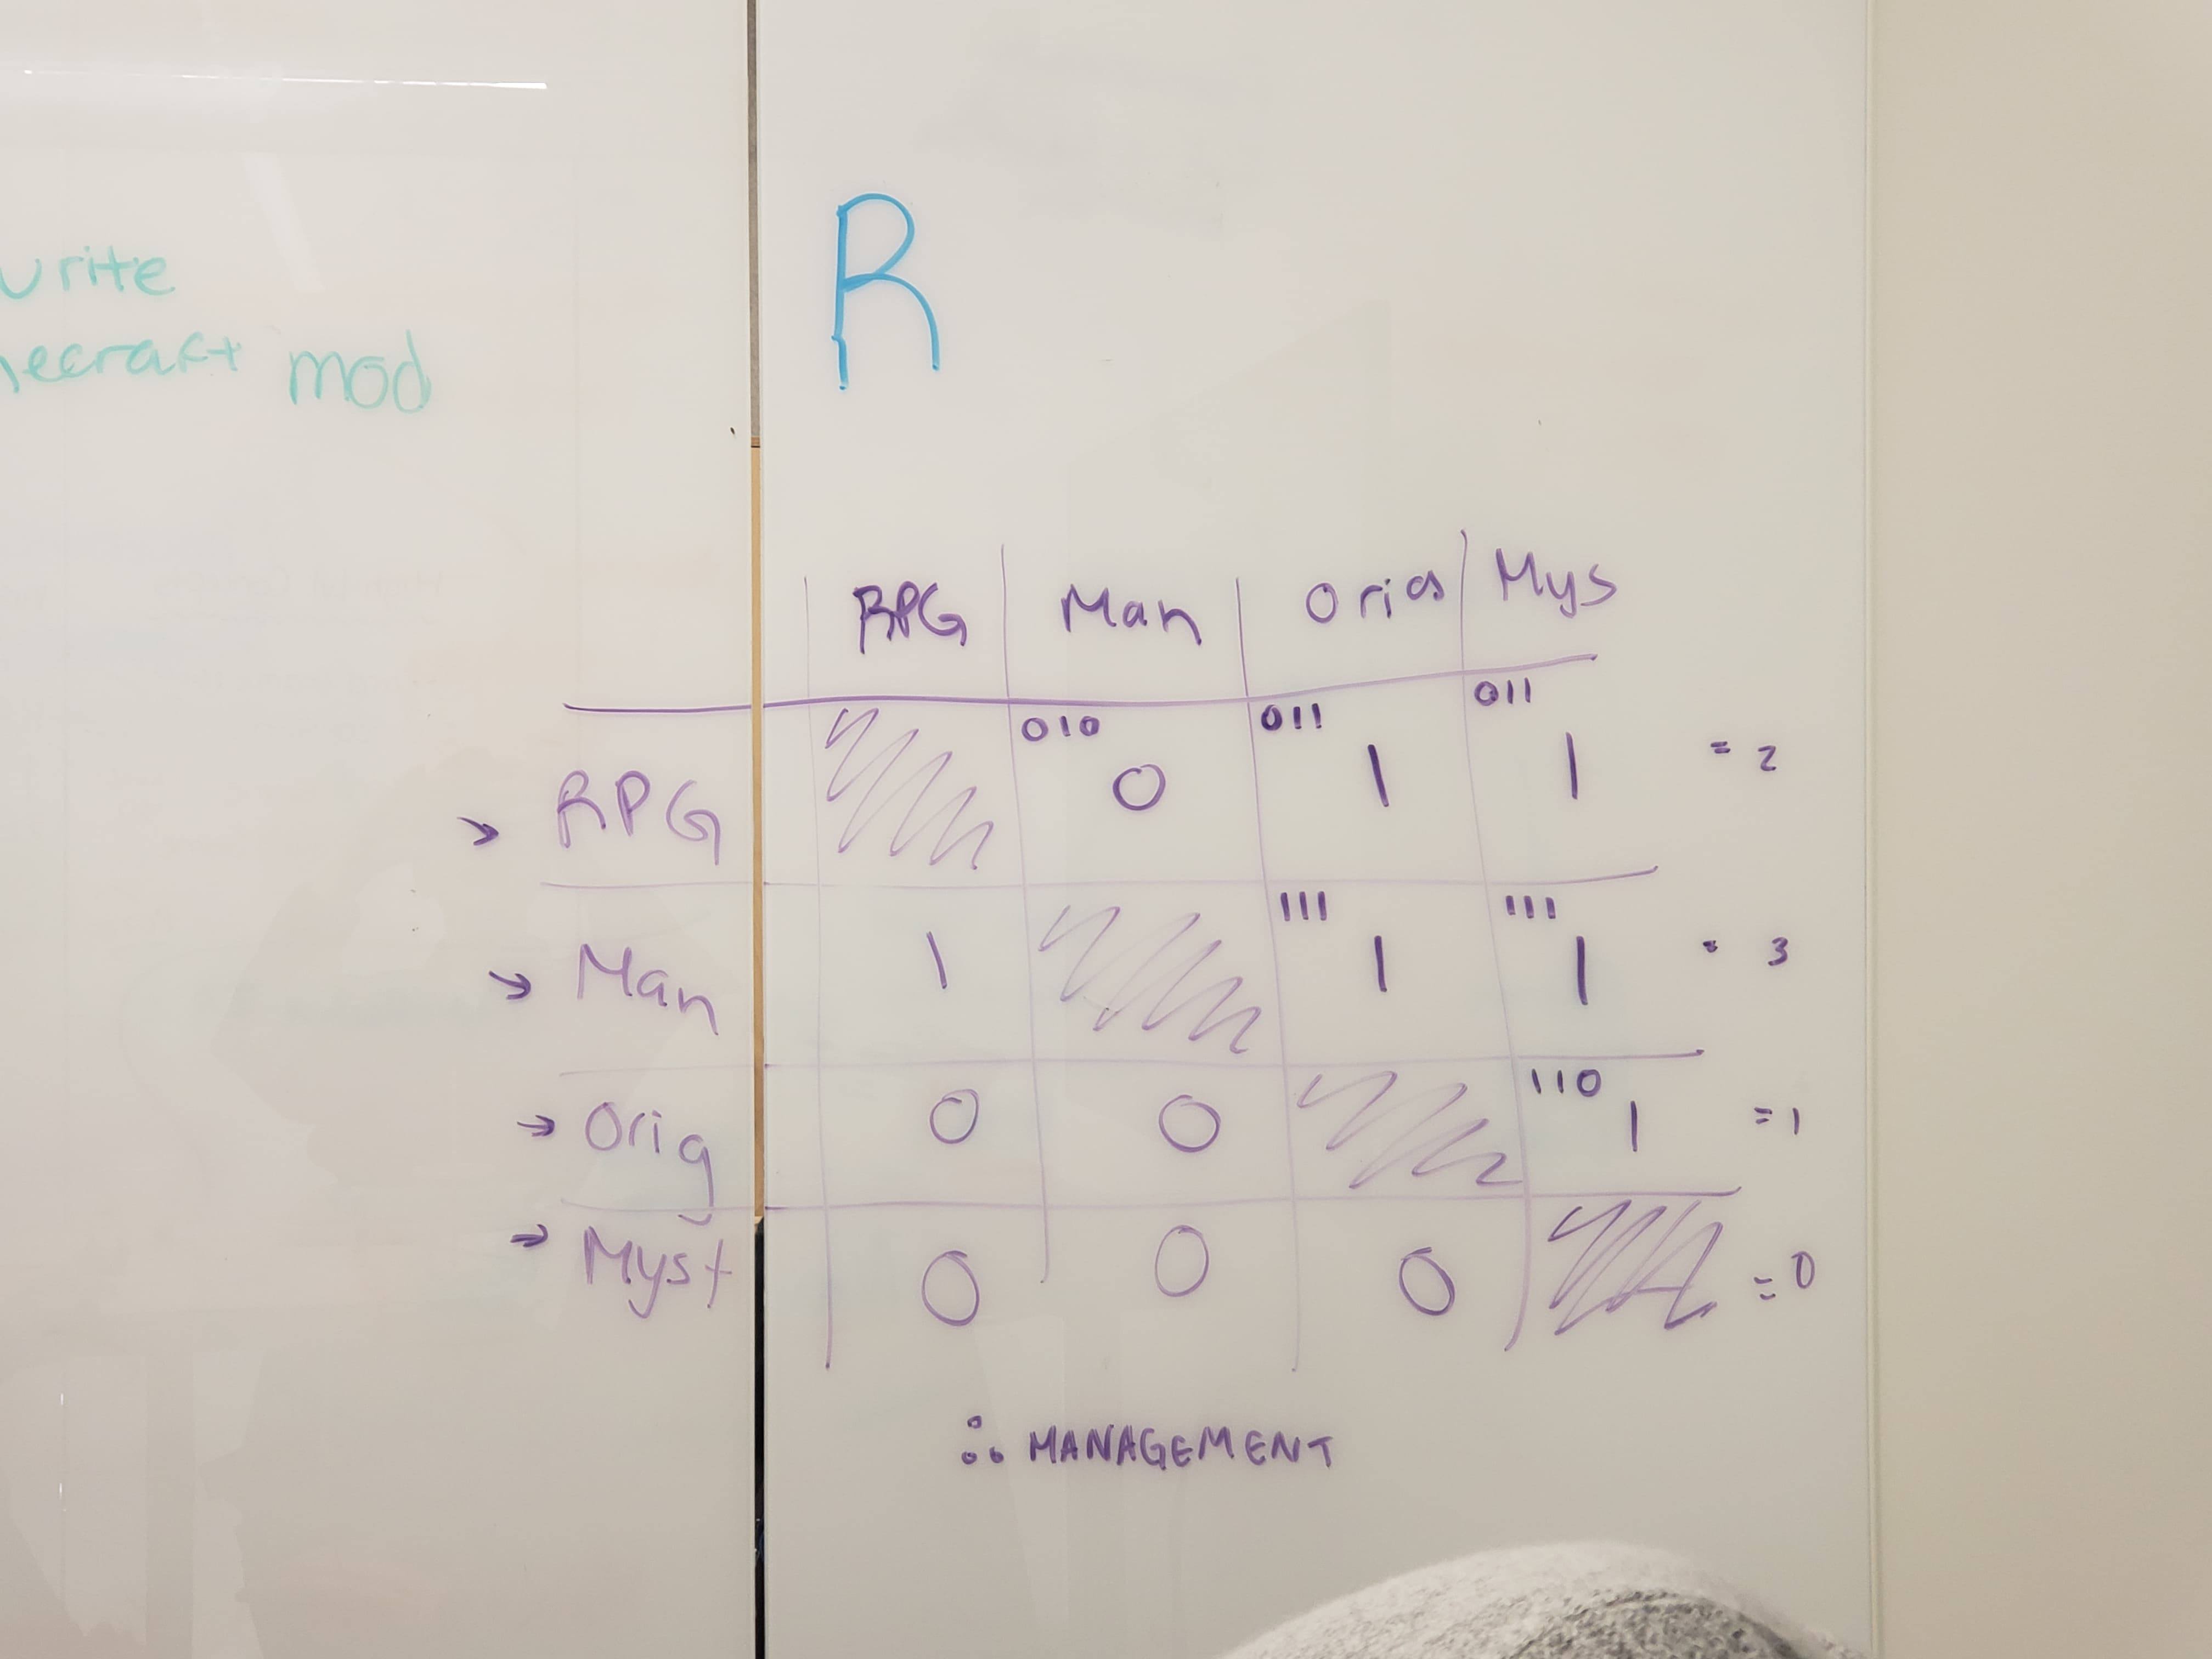 urite
necraft mod
R
RPG Man Orig Mys
RPG 010 0 011 1 011 1 = 2
Man 1 111 1 111 1 = 3
Orig 0 0 110 1 = 1
Myst 0 0 0 = 0
∴ MANAGEMENT